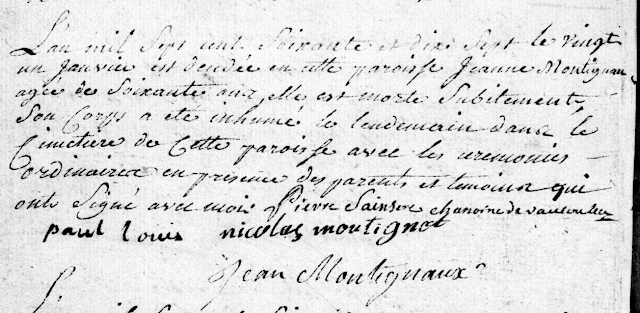 L'an mil Sept cent Soixante et dix Sept le vingt
un Janvier est decedée en cette paroisse Jeanne Montignau
agée de Soixante ans elle est morte Subitement
Son Corps a eté inhumé le lendemain dans le
Cimetiere de Cette paroisse avec les ceremonies
ordinaires en presence des parents et temoins qui
ont Signé avec moi Pierre Sainsere chanoine de vaucouleur
paul louis nicolas montignot
Jean Montignaux